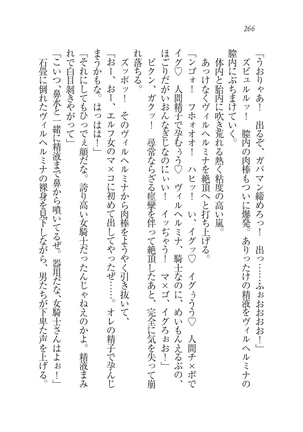 266
「うおりゃあ！　出るぞ、ガバマン締めろっ！　出っ……ふぉおおおお！」
ズビュルルッ！　膣内の肉棒もついに爆発。ありったけの精液をヴィルヘルミナの
膣内にぶちまけていく。
体内と胎内に吹き荒れる熱く粘度の高い嵐。
あっけなくヴィルヘルミナを絶頂へと打ち上げる。
「ンゴォー！　フホォオオ！　ハヒッ！　い、イグッ♡　イグぅうう♡　人間チ×ポで
イグ♡　人間精子で孕むぅうう♡　ヴィルヘルミナ、騎士なのに、めいもんえるふなのに、
ほこりだがいおんなきしなのにいー！　イッちゃう！　マ×ゴ、イグぅおおおっ！」
ビクン、ガクッ！　尋常ならざる痙攣を伴って絶頂したあと、完全に気を失って崩
れ落ちる。
ズッポー！　そのヴィルヘルミナから肉棒をようやく引き抜いて、
「おー、おー、エルフ女のマ×コに初めて出してやったぜ……。オレの精子で孕んじ
まうかもな。はははは！」
「それにしてもひっでぇ顔だな。誇り高い女騎士だったんじゃねえのかよ。精液まみ
れで白目剥きやがって」
「こいつ、鼻水と一緒に精液まで鼻から噴いてるぜ。器用だな、女騎士さんはよぉ！」
石畳に倒れたヴィルヘルミナの裸身を見下しながら、男たちが下卑た声を上げる。